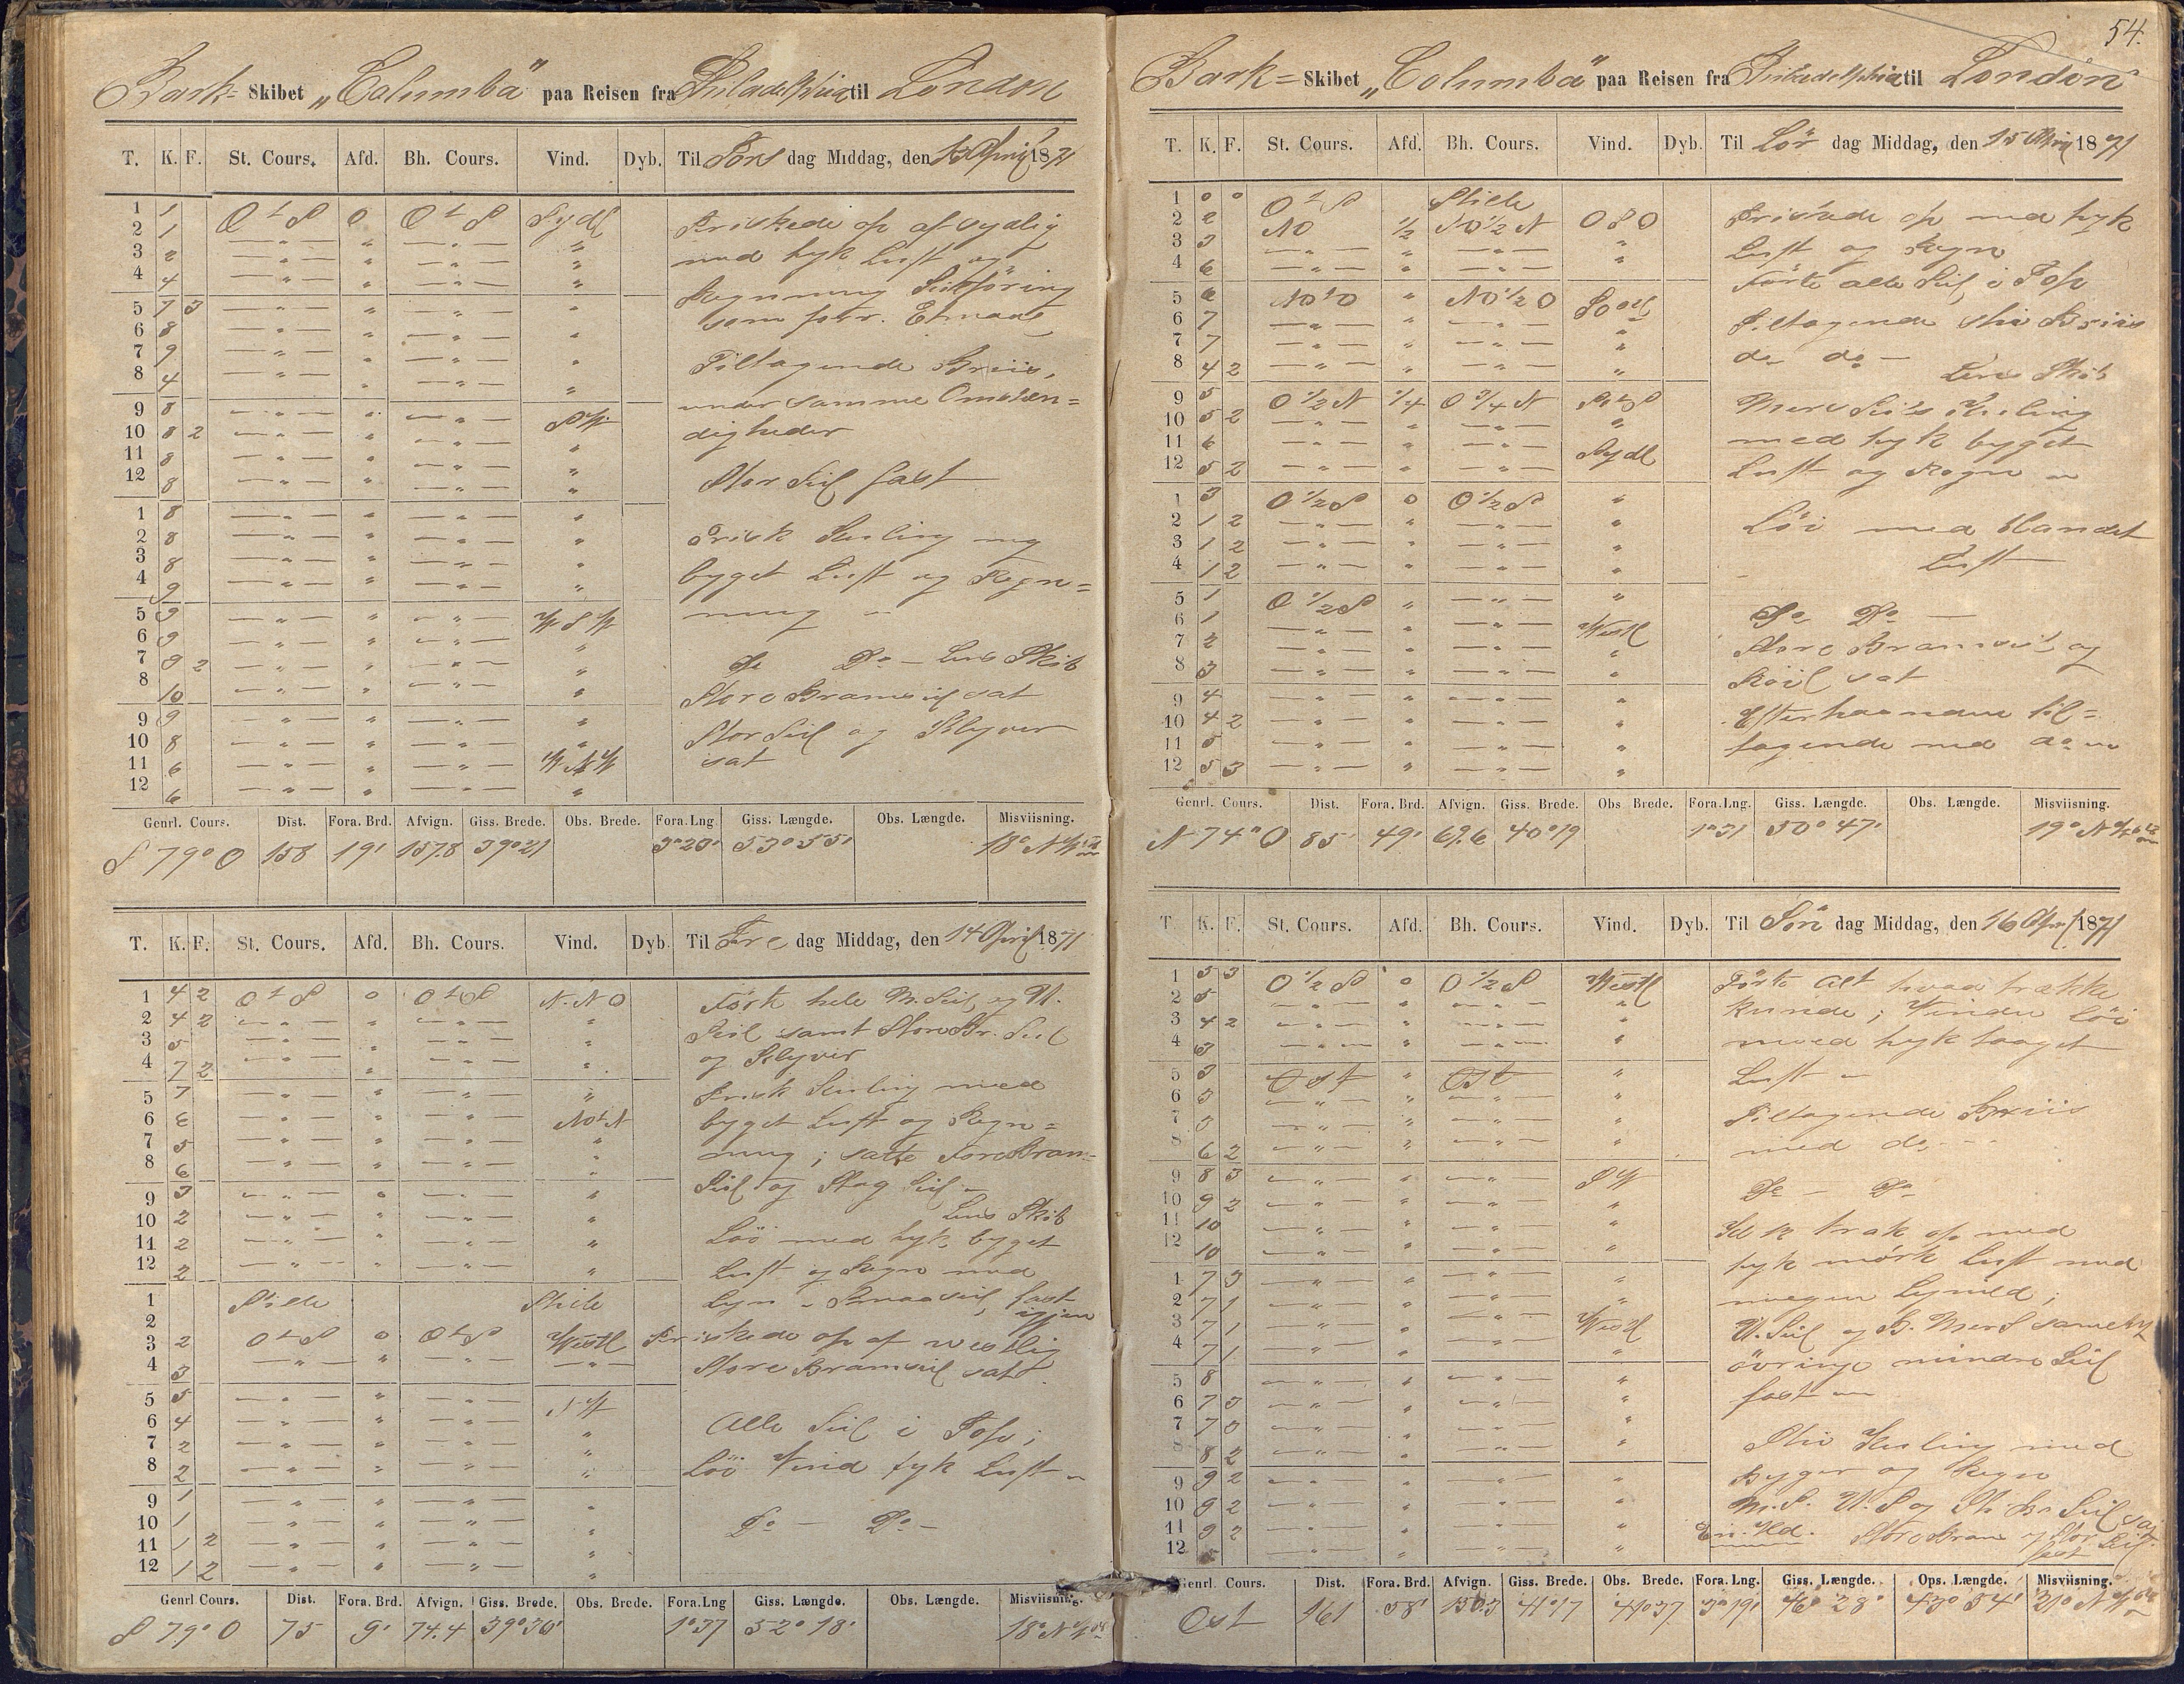 Bark- Skibet „Columba" paa Reisen fra Philadelphia til London
T. K. F. St. Cours. Afd. Bh. Cours. Vind. Dyb. Til Tors dag Middag, den 13 April 1871
1 1 O t S 0 O t S Sydl
2 1 — „ — „ — „ — „
3 2 — „ — „ — „ — „
4 4 — „ — „ — „ — „
5 7 3 — „ — „ — „ — „
6 8 — „ — „ — „ — „
7 9 — „ — „ — „ — „
8 4 — „ — „ — „ — „
9 8 — „ — „ — „ — SW
10 8 2 — „ — „ — „ — „
11 8 — „ — „ — „ — „
12 8 — „ — „ — „ — „
1 8 — „ — „ — „ — „
2 8 — „ — „ — „ — „
3 8 — „ — „ — „ — „
4 9 — „ — „ — „ — „
5 9 — „ — „ — „ — W S W
6 9 — „ — „ — „ — „
7 9 2 — „ — „ — „ — „
8 10 — „ — „ — „ — „
9 9 — „ — „ — „ — „
10 8 — „ — „ — „ — „
11 6 — „ — „ — „ — W N W
12 6 — „ — „ — „ — „
Friskede op af sydlig
med tyk Luft og
Regnning Seilføring
som forr. Etmaal
Tiltagende Briis,
under samme Omstæn=
digheder
Stor Seil fast
Frisk Kuling med
byget Luft og Regn=
ning
Do Do — Lens Skib
Store Bramseil sat
Stor Seil og Klyver
sat
Genrl. Cours. Dist. Fora. Brd. Afvign. Giss. Brede. Obs. Brede. Fora. Lng. Giss. Længde. Obs. Længde. Misviisning.
S 79° O 158 19' 157.8 39°21 3°23' 53°55' 18° N W
T. K. F. St. Cours. Afd. Bh. Cours. Vind. Dyb. Til Fre dag Middag, den 14 April 1871
1 4 2 O t S 0 O t S N.N O
2 4 2 — „ — „ — „ — „
3 5 — „ — „ — „ — „
4 7 2 — „ — „ — „ — „
5 7 — „ — „ — „ — „
6 6 — „ — „ — „ — NO t N
7 5 — „ — „ — „ — „
8 6 — „ — „ — „ — „
9 3 — „ — „ — „ — „
10 2 — „ — „ — „ — „
11 2 — „ — „ — „ — „
12 2 — „ — „ — „ — „
1 Stille Stille
2
3 2 O t S 0 O t S Westl
4 3 — „ — „ — „ — — „ —
5 5 — „ — „ — „ — S W
6 4 — „ — „ — „ — „
7 2 — „ — „ — „ — „
8 2 — „ — „ — „ — „
9 1 — „ — „ — „ — „
10 1 — „ — „ — „ — „
11 1 2 — „ — „ — „ — „
12 1 2 — „ — „ — „ — „
Førte hele M. Seil og U.
Seil samt Store Br. Seil
og Klyver
Frisk Kuling med
byget Luft og Regn=
ning; satte Fore Bram=
Seil og Stag Seil —
Lens Skib
Löi med tyk byget
Luft og Regn med
Lyn — Smaaseil fast
igjen
Friskede op af westlig
Store Bramseil sat.
Alle Seil i Top;
Löi Vind tyk Luft —
Do — Do —
Genrl Cours. Dist. Fora. Brd. Afvign. Giss. Brede. Obs. Brede. Fora. Lng Giss. Længde. Obs. Længde. Misviisning.
S 79° O 75 9' 74.4 39°30' 1°37 52° 18' 18° N W
54.
Bark= Skibet „Columba" paa Reisen fra Philadelphia til London
T. K. F. St. Cours. Afd. Bh. Cours. Vind. Dyb. Til Lör dag Middag, den 15 April 1871
1 0 0 O t S Stille
2 2 NO 1/2 NO 1/2 N O S O
3 3 — „ — „ — „ — „
4 6 — „ — „ — „ — „
5 6 NO t O „ NO 1/2 O SOstl
6 7 — „ — „ — „ — „
7 7 — „ — „ — „ — „
8 4 2 — „ — „ — „ — „
9 5 O 1/2 N 1/4 O 3/4 N S t O
10 5 2 — „ — „ — „ — „
11 6 — „ — „ — „ — Sydl
12 5 2 — „ — „ — „ —
1 3 O 1/2 S 0 O 1/2 S „
2 1 2 — „ — „ — „ — „
3 1 2 — „ — „ — „ — „
4 1 2 — „ — „ — „ — „
5 1 O 1/2 S „ — „ — „
6 1 — „ — „ — „ — Westl
7 2 — „ — „ — „ — „
8 3 — „ — „ — „ — „
9 4 — „ — „ — „ — „
10 4 2 — „ — „ — „ — „
11 5 — „ — „ — „ — „
12 5 3 — „ — „ — „ — „
Friskede op med tyk
Luft og Regn
Förte alle Seil i Top
Tiltagende stiv Briis
do do —
Lens Skib
Mers Seils Kuling
med tyk byget
Luft og Regn —
Löi med blandet
Luft —
Do Do —
Store Bramseil og
Röil sat
Efterhaanden til=
tagende med do —
Genrl. Cours. Dist. Fora. Brd. Afvign. Giss. Brede. Obs Brede. Fora. Lng. Giss. Længde. Obs. Længde. Misviisning.
N 74° O 85 49' 69.6 40°19 1°31 50° 47' 19° N W
T. K. F. St. Cours. Afd. Bh. Cours. Vind. Dyb. Til Sön dag Middag, den 16 Apr 1871
1 5 3 O 1/2 S 0 O 1/2 S Westl
2 5 — „ — „ — „ — „
3 4 2 — „ — „ — „ — „
4 3 — „ — „ — „ — „
5 3 Ost „ Ost „
6 3 — „ — „ — „ — „
7 5 — „ — „ — „ — „
8 6 2 — „ — „ — „ — „
9 8 3 — „ — „ — „ — S W
10 9 2 — „ — „ — „ — „
11 10 — „ — „ — „ — „
12 10 — „ — „ — „ — „
1 7 3 — „ — „ — „ — „
2 7 1 — „ — „ — „ — „
3 7 1 — „ — „ — „ — Westl
4 7 1 — „ — „ — „ — „
5 8 — „ — „ — „ — „
6 7 3 — „ — „ — „ — „
7 7 3 — „ — „ — „ — „
8 8 2 — „ — „ — „ — „
9 9 2 — „ — „ — „ — „
10 9 2 — „ — „ — „ — „
11 9 2 — „ — „ — „ — „
12 — „ — „ — „ — „
Förte alt hvad trække
kunde; Vinden Löi
med tyk taaget
Luft —
Tiltagende Briis
med do —
Do — Do
trak op med
tyk mörk Luft med
megen Lynild;
U. Seil og B. Mers samt
övrige mindre Seil
fast —
Stiv Kuling med
Byger og Regn
M.S. U.S og St. Br Seil
Store Bram og Stor Seil
fast
Genrl. Cours. Dist. Fora. Brd. Afvign. Giss. Brede. Obs. Brede. Fora. Lng. Giss. Længde. Ops. Længde. Misviisning.
Ost 161 58' 150.3 41°17 41°37 3°19' 46° 28' 43° 54' 21° N W